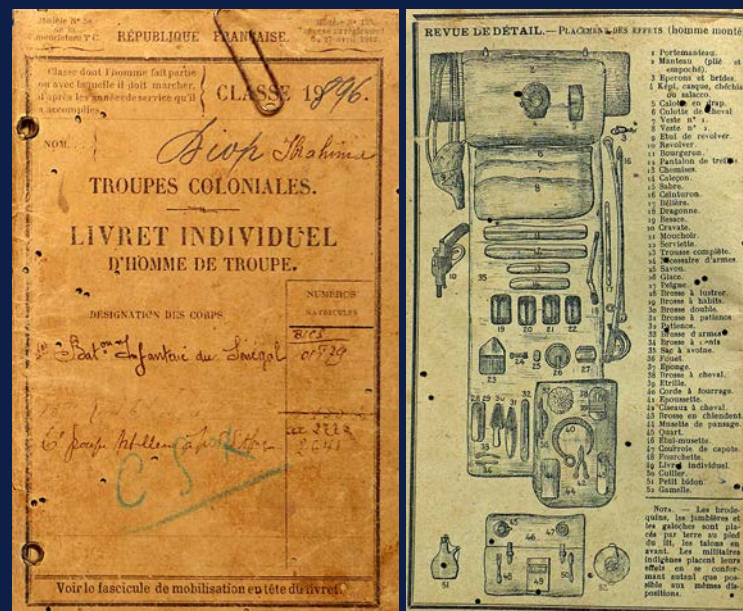 Modèle N° 5a
de la
nomenclature T C.
RÉPUBLIQUE FRANÇAISE.
Classe dont l'homme fait partie
ou avec laquelle il doit marcher,
d'après les années de service qu'il
a accomplies.
CLASSE 1896.
NOM
Diop Ibrahima
TROUPES COLONIALES.
LIVRET INDIVIDUEL
D'HOMME DE TROUPE.
DÉSIGNATION DES CORPS.
NUMÉROS
MATRICULES
Bat on Infanterie du Sénégal
6e groupe
C S R
Voir le fascicule de mobilisation en tête du livret.
REVUE DE DÉTAIL. — PLACEMENT DES EFFETS (homme monté
1 Portemanteau.
2 Manteau (plié et
empoché).
3 Eperons et brides.
4 Képi, casque, chéchia
ou salacco.
5 Calotte en drap.
6 Culotte de cheval
7 Veste n° 1.
8 Veste n° 2.
9 Etui de revolver.
10 Revolver.
11 Bourgeron.
12 Pantalon de treillis.
13 Chemises.
14 Caleçon.
15 Sabre.
16 Ceinturon.
17 Bélière.
18 Dragonne.
19 Besace.
20 Cravate.
21 Mouchoir.
22 Serviette.
23 Trousse complète.
24 Nécessaire d'armes.
25 Savon.
26 Glace.
27 Peigne.
28 Brosse à lustrer.
29 Brosse à habits.
30 Brosse double.
31 Brosse à patience
32 Patience.
33 Brosse d'armes
34 Brosse à
35 Sac à avoine.
36 Fouet.
37 Eponge.
38 Brosse à cheval.
39 Etrille.
40 Corde à fourrage.
41 Epoussette.
42 Ciseaux à cheval.
43 Brosse en chiendent.
44 Musette de pansage.
45 Quart.
46 Etui-musette.
47 Courroie de capote.
48 Fourchette.
49 Livret individuel.
50 Cuiller.
51 Petit bidon.
52 Gamelle.
NOTA. — Les brode-
quins, les jambières et
les galoches sont pla-
cés par terre au pied
du lit, les talons en
avant. Les militaires
indigènes placent leurs
effets en se confor-
mant autant que pos-
sible aux mêmes dis-
positions.